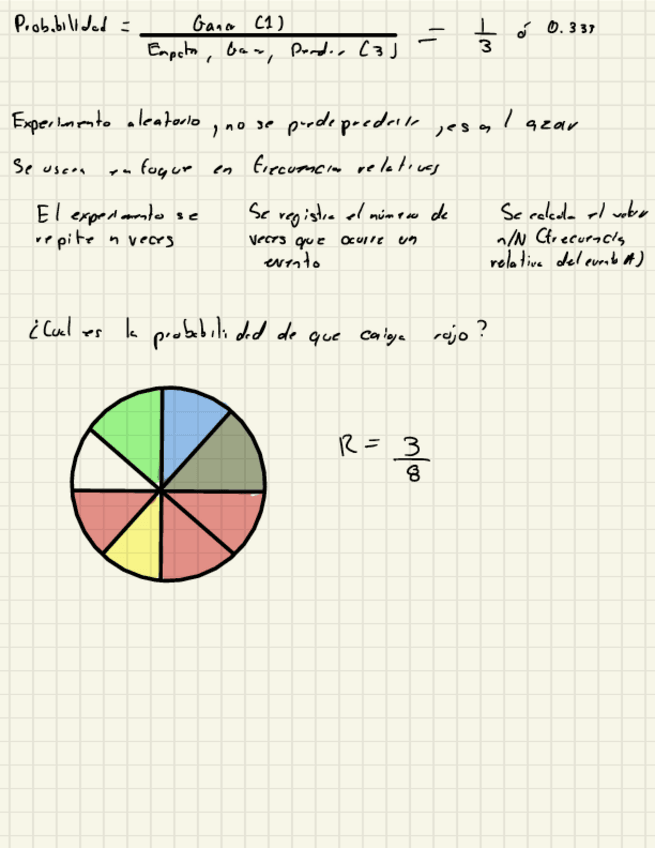 Probabilidad = Gana (1) / Empate, Gana, Perder (3) = 1/3 ó 0.333
Experimento aleatorio, no se puede predecir, es al azar
Se usa un foque en frecuencia relativas
El experimento se repite n veces
Se registra el número de veces que ocurre un evento
Se calcula el valor n/N (frecuencia relativa del evento A)
¿Cual es la probabilidad de que caiga rojo?
R = 3/8